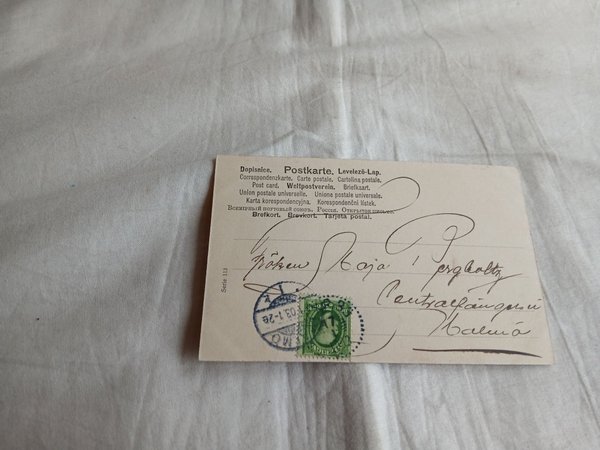 Dopisnice. Postkarte. Levelezö-Lap.
Correspondenzkarte. Carte postale. Cartolina postale.
Post card. Weltpostverein. Briefkaart.
Union postale universelle. Unione postale universale.
Karta korespondencyjna. Korespondenční lístek.
Всемірный почтовый союзъ. Россія. Открытое письмо.
Brefkort. Brevkort. Tarjeta postal.
Fröken Maja Bergholtz
Centralfängelset
Malmö
Serie 113